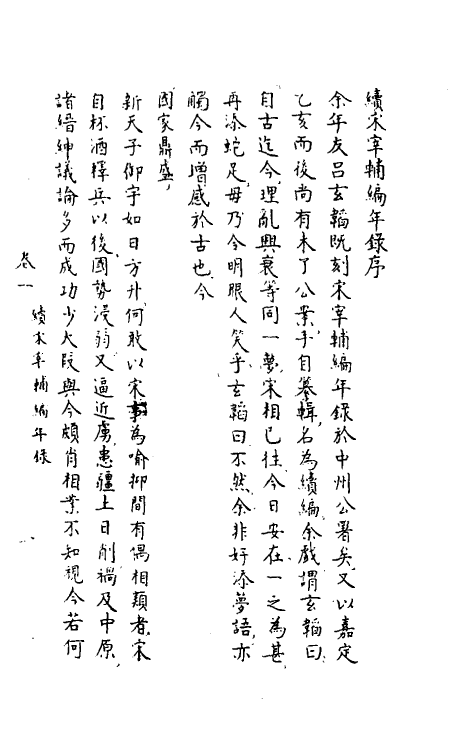 續宋宰輔編年錄序
余年友呂玄韜既刻宋宰輔編年錄於中州公署矣又以嘉定
乙亥而後尚有未了公業手自纂輯名為續編余戲謂玄韜曰
自古迄今理亂興衰等同一夢宋相已往今日安在一之為甚
再添蛇足毋乃令明眼人笑乎玄韜曰不然余非好添夢語亦
觸今而增感於古也今
國家鼎盛
新天子御宇如日方升何敢以宋事為喻抑間有偶相類者宋
自杯酒釋兵以後國勢浸弱又逼近虜患疆土日削禍及中原
諸縉紳議論多而成功少大段與今頗肖相業不知視今若何
卷一 續宋宰輔編年錄 一